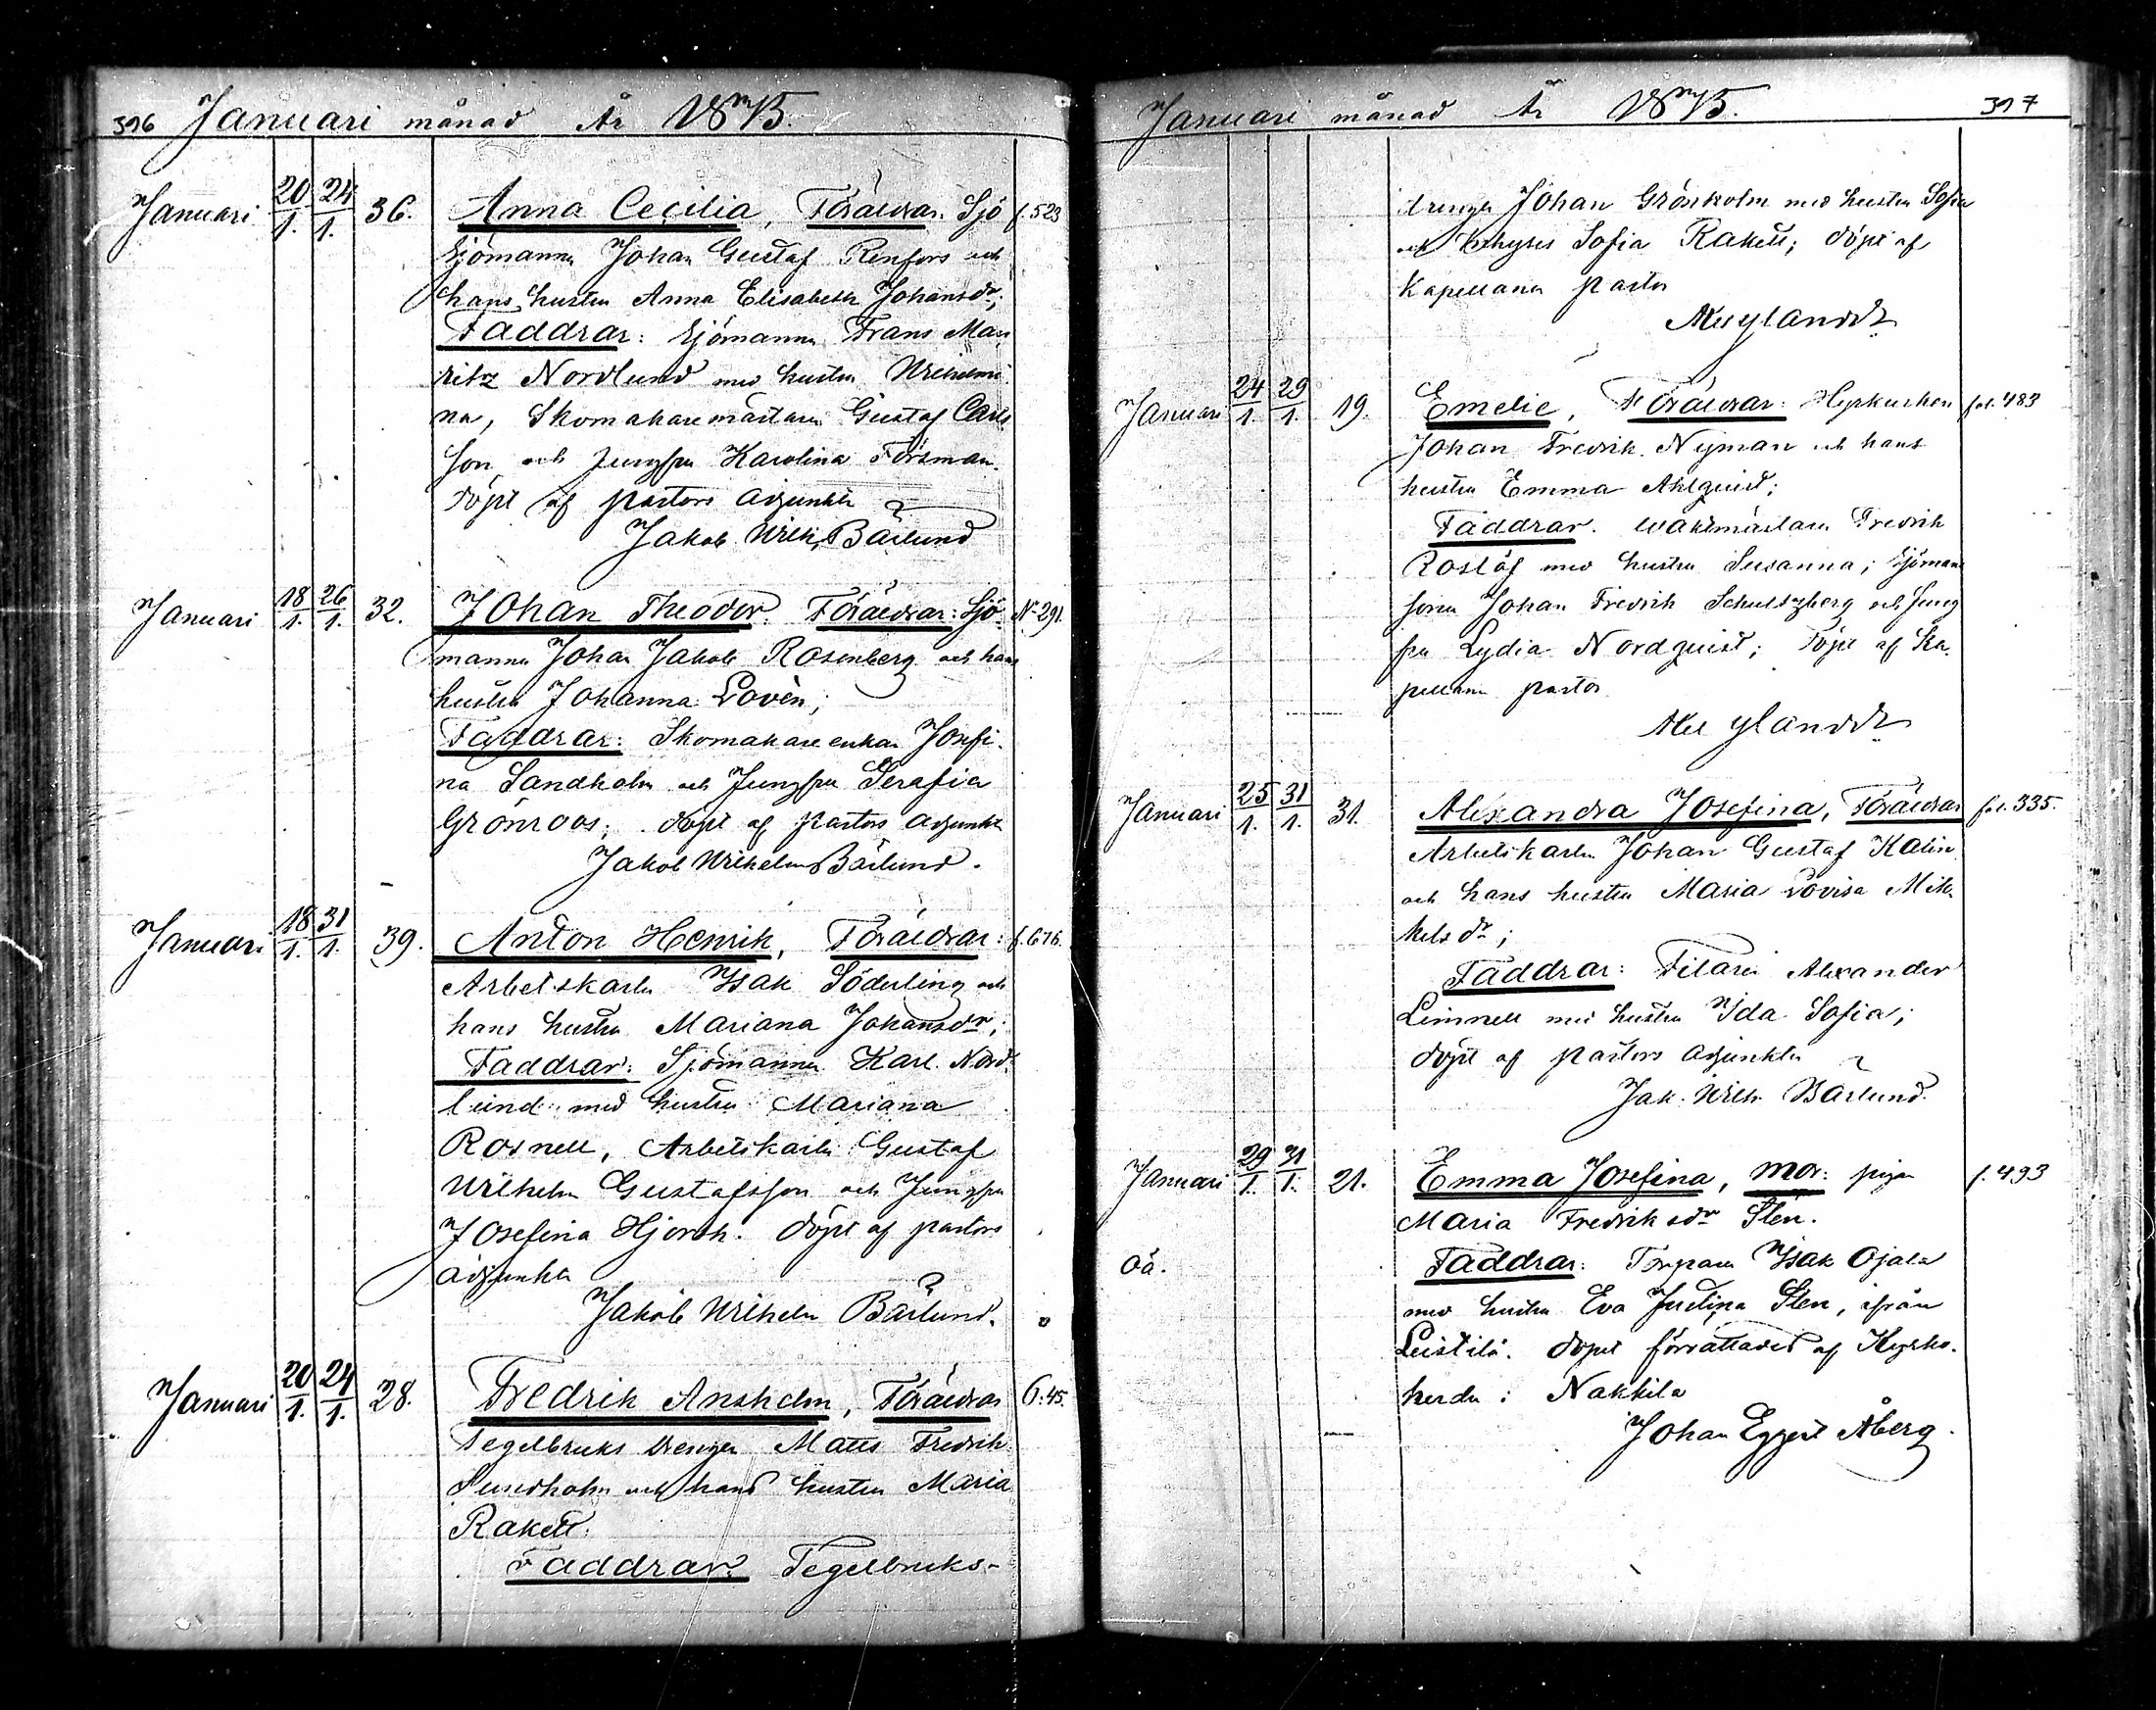 316 Januari månad År 1875.
Januari 20/1. 24/1. 36. Anna Cecilia, Föräldrar: Sjö f. 523
sjömannen Johan Gustaf Renfors och
hans hustru Anna Elisabeth Johansdr;
Faddrar: Sjömannen Frans Mau
ritz Nordlund med hustru Wilhelmi
na, Skomakaremästaren Gustaf Carls
son och Jungfru Karolina Forsman.
döpt af pastors adjunkten
Jakob Wilh. Bärlund
Januari 18/1. 26/1. 32. Johan Theodor. Föräldrar: Sjö- No 291.
mannen Johan Jakob Rosenberg och hans
hustru Johanna Lovén;
Faddrar: Skomakare enkan Josefi-
na Sandholm och Jungfru Serafia
Grönroos; döpt af pastors adjunkten
Jakob Wilhelm Bärlund.
Januari 18/1. 31/1. 39. Anton Henrik, Föräldrar: f. 676.
Arbetskarlen Isak Söderling och
hans hustru Mariana Johansdr;
Faddrar: Sjömannen Karl Nord-
lund med hustru Mariana
Rosnell, Arbetskarlen Gustaf
Wilhelm Gustafsson och Jungfru
Josefina Hjorth. döpt af pastors
adjunkten
Jakob Wilhelm Bärlund.
Januari 20/1. 24/1. 28. Fredrik Anshelm, Föräldrar 6:45.
Tegelbruks drengen Matts Fredrik
Sundholm och hans hustru Maria
Rakett.
Faddrar. Tegelbruks-
Januari månad År 1875. 317
drengen Johan Grönholm med hustru Sofia
och Sofia Rakett; döpt af
Kapellanen pastor
Nylander
Januari 24/1. 29/1. 19. Emelie, Föräldrar: Hyrkusken fol. 483
Johan Fredrik Nyman och hans
hustru Emma Ahlquist;
Faddrar. Waktmästaren Fredrik
Roslöf med hustru Susanna; Sjömans
sonen Johan Fredrik Schultzberg och Jung
fru Lydia Nordquist; döpt af Ka-
pellanen pastor
Nylander
Januari 25/1. 31/1. 31. Alexandra Josefina, Föräldrar fol. 335.
Arbetskarlen Johan Gustaf Kalin
och hans hustru Maria Lovisa Mik-
kelsdr;
Faddrar: Filaren Alexander
Limnell med hustru Ida Sofia;
döpt af pastors adjunkten
Jak. Wilh. Bärlund.
Januari 29/1. 31/1. 21. Emma Josefina, mor: pigan f. 493
Maria Fredriksdr Sten.
oä.
Faddrar: Torparen Isak Ojala
med hustru Eva Justina Sten, ifrån
Leistilä. dopet förrättades af Kyrko-
herden i Nakkila
Johan Eggert Åberg.